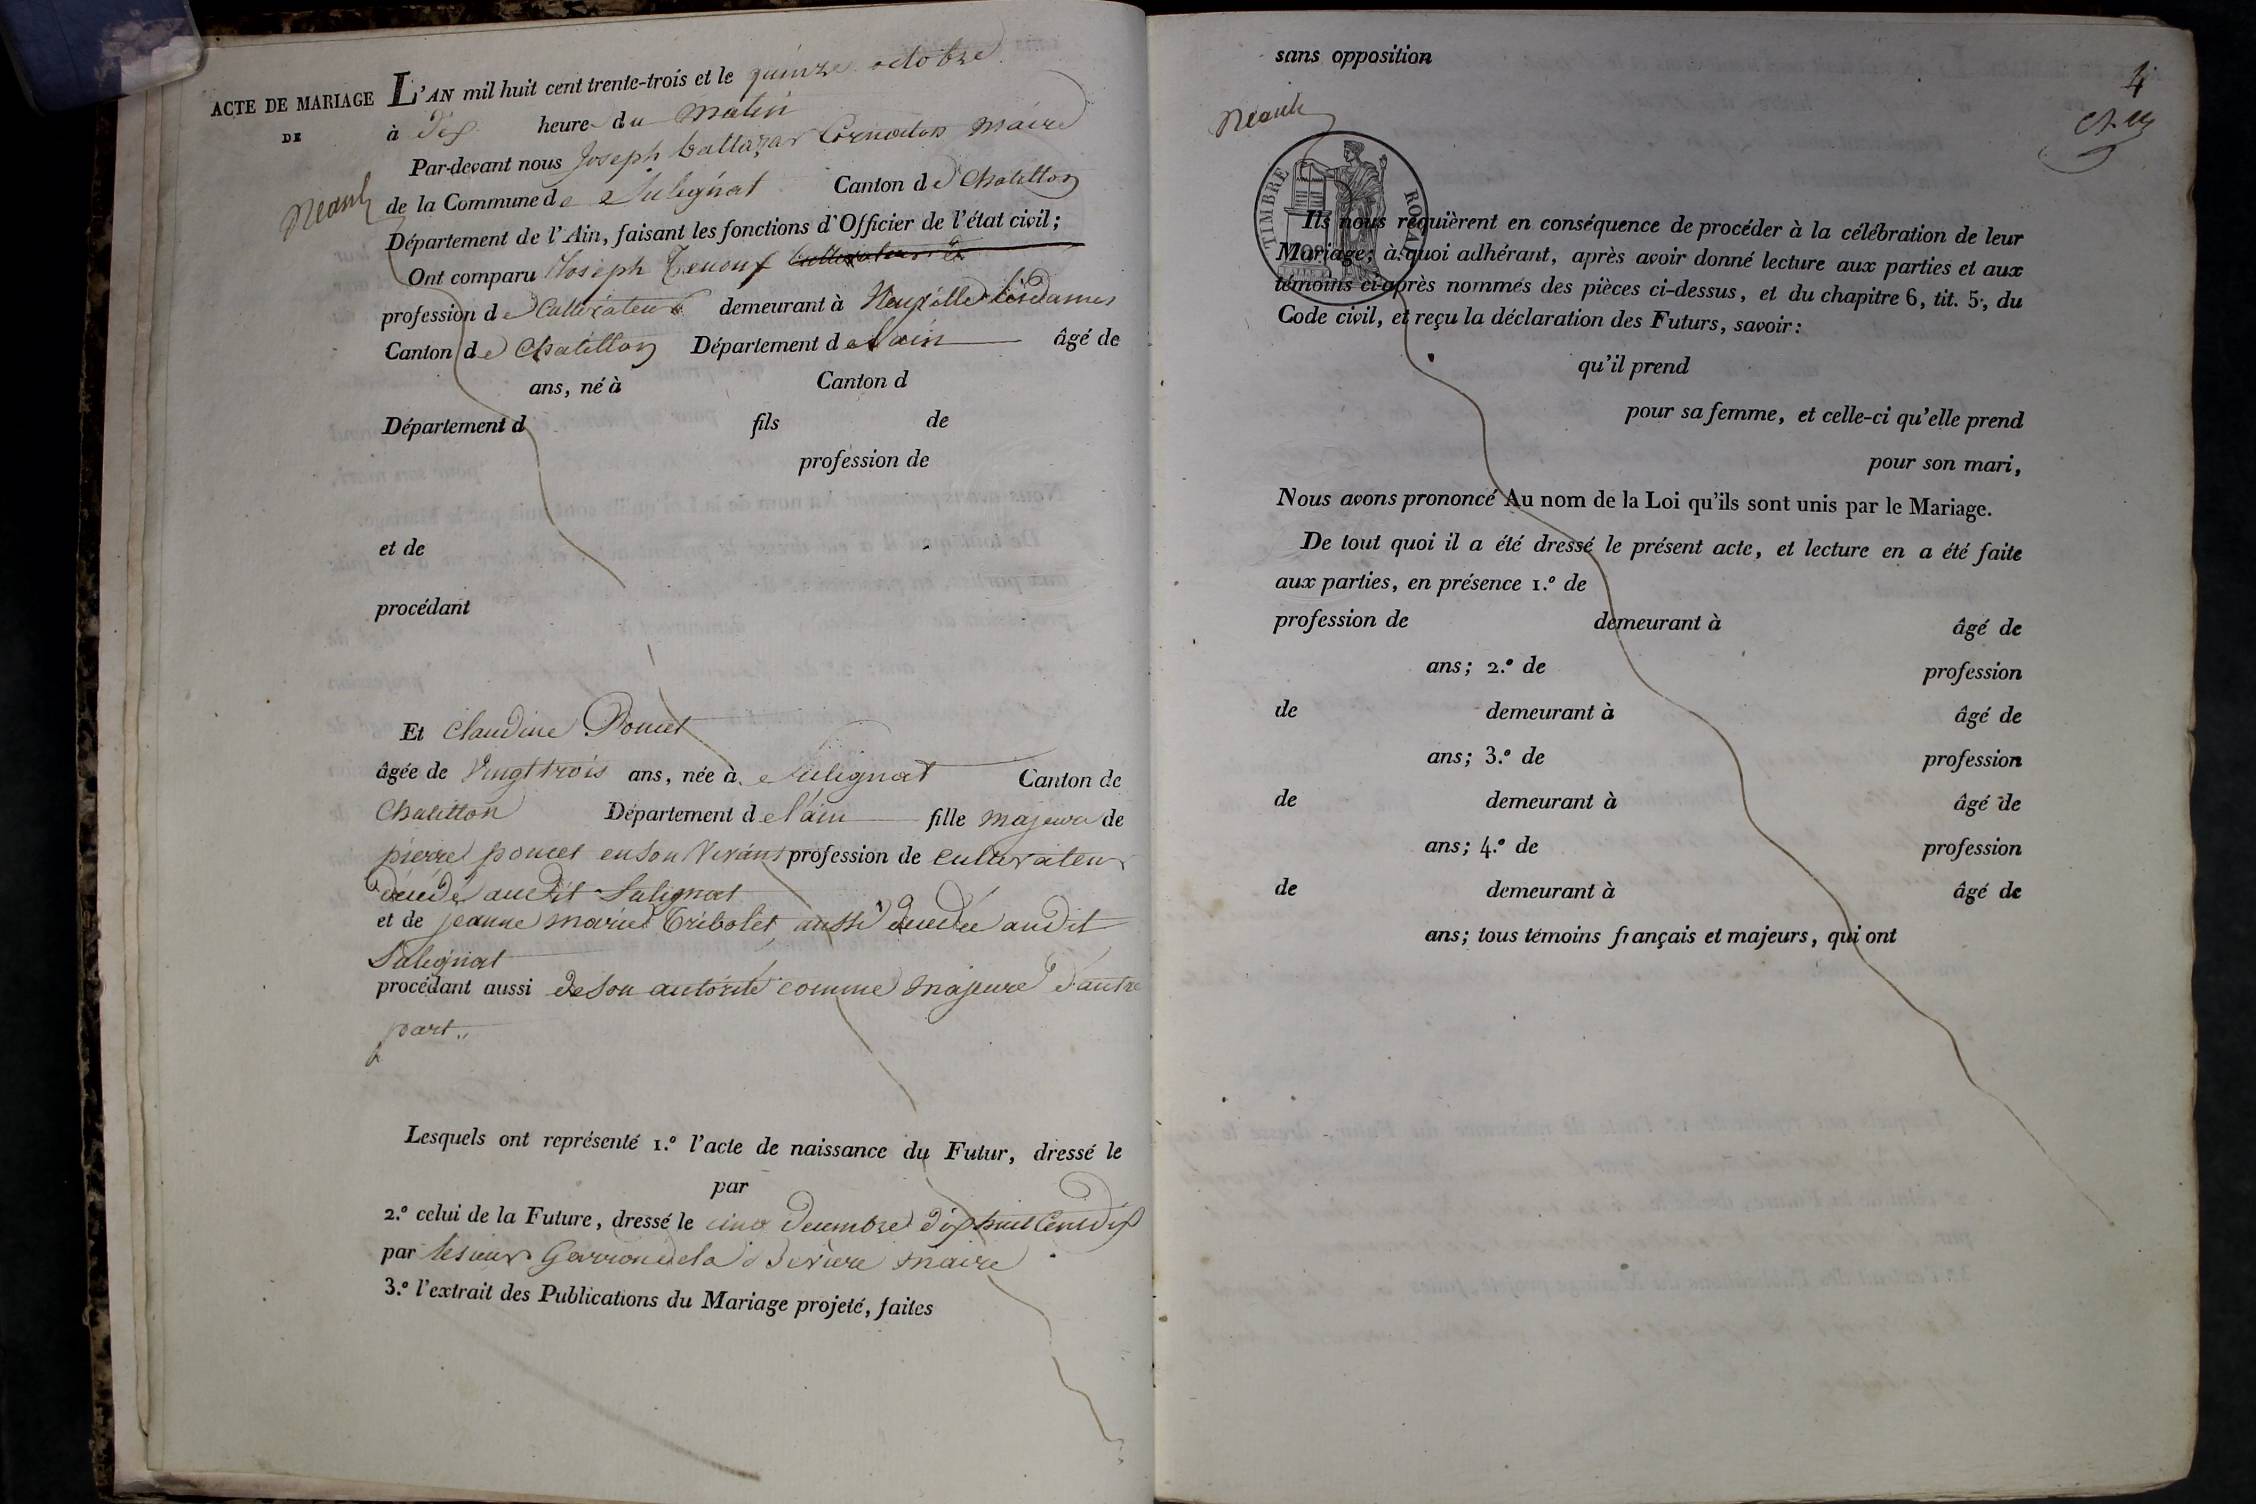 ACTE DE MARIAGE
DE
Néant
L'AN mil huit cent trente-trois et le quinze octobre
à dix heure du matin
Par-devant nous Joseph baltazar Cornaton maire
de la Commune de Sulignat Canton de Chatillon
Département de l'Ain, faisant les fonctions d'Officier de l'état civil ;
Ont comparu Joseph Cultivateur
profession de Cultivateur demeurant à Neuville les dames
Canton de Chatillon Département de l'ain âgé de
ans, né à Canton d
Département d fils de
profession de
et de
procédant
Et Claudine Poncet
âgée de Vingt trois ans, née à Sulignat Canton de
Chatillon Département de l'ain fille majeure de
pierre poncet en son Vivant profession de cultivateur
décédé audit Sulignat
et de jeanne marie Tribolet aussi décédée audit
Sulignat
procédant aussi de son autorité comme majeure d'autre
part.
Lesquels ont représenté 1.º l'acte de naissance du Futur, dressé le
par
2.º celui de la Future, dressé le cinq decembre dix huit Cent dix
par le sieur maire
3.º l'extrait des Publications du Mariage projeté, faites
sans opposition
4
Néant
TIMBRE ROYAL
Ils nous requièrent en conséquence de procéder à la célébration de leur
Mariage; à quoi adhérant, après avoir donné lecture aux parties et aux
témoins ci-après nommés des pièces ci-dessus, et du chapitre 6, tit. 5, du
Code civil, et reçu la déclaration des Futurs, savoir :
qu'il prend
pour sa femme, et celle-ci qu'elle prend
pour son mari,
Nous avons prononcé Au nom de la Loi qu'ils sont unis par le Mariage.
De tout quoi il a été dressé le présent acte, et lecture en a été faite
aux parties, en présence 1.º de
profession de demeurant à âgé de
ans; 2.º de profession
de demeurant à âgé de
ans; 3.º de profession
de demeurant à âgé de
ans; 4.º de profession
de demeurant à âgé de
ans; tous témoins français et majeurs, qui ont